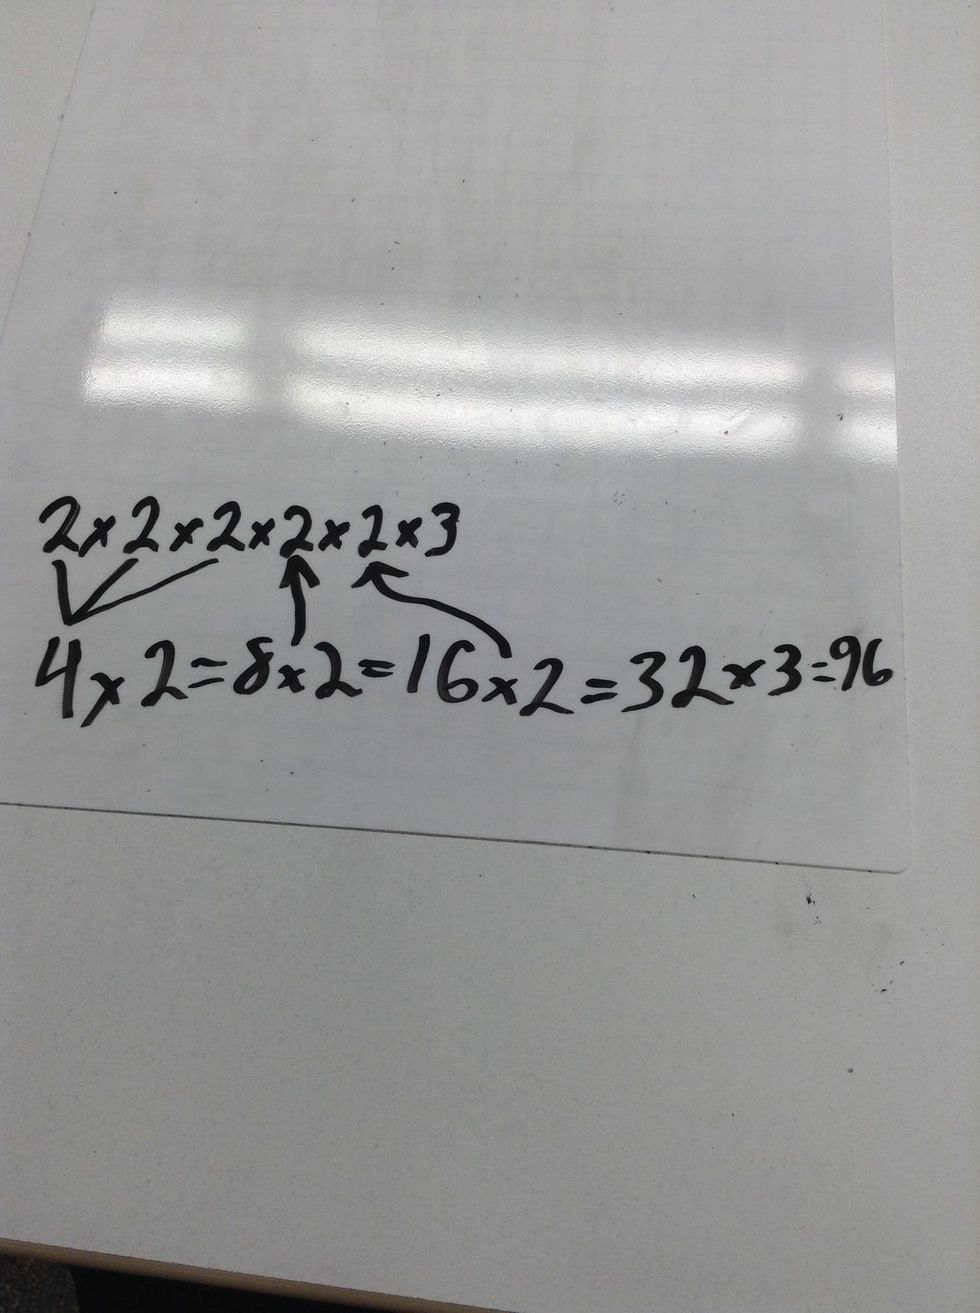 2×2×2×2×2×3
4×2=8×2=16×2=32×3=96